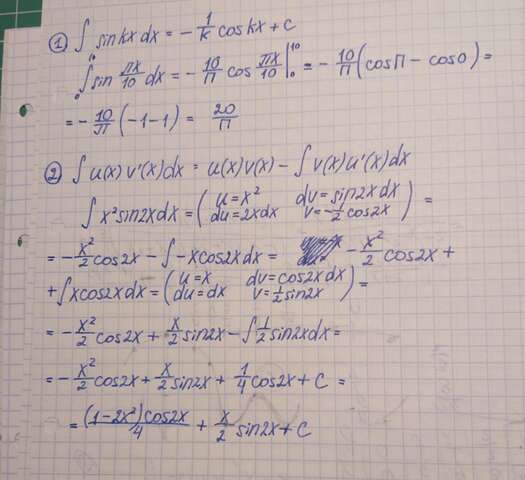 ① ∫ sin kx dx = - 1/k cos kx + C
∫₀¹⁰ sin πx/10 dx = - 10/π cos πx/10 |₀¹⁰ = - 10/π (cos π - cos 0) =
= - 10/π (-1-1) = 20/π
② ∫ u(x) v'(x)dx = u(x) v(x) - ∫ v(x) u'(x)dx
∫ x² sin2x dx = ( u = x² dv = sin2x dx
du = 2x dx v = -1/2 cos2x ) =
= - x²/2 cos2x - ∫ -x cos2x dx = - x²/2 cos2x +
+ ∫ x cos2x dx = ( u = x dv = cos2x dx
du = dx v = 1/2 sin2x ) =
= - x²/2 cos2x + x/2 sin2x - ∫ 1/2 sin2x dx =
= - x²/2 cos2x + x/2 sin2x + 1/4 cos2x + C =
= (1-2x²)cos2x/4 + x/2 sin2x + C